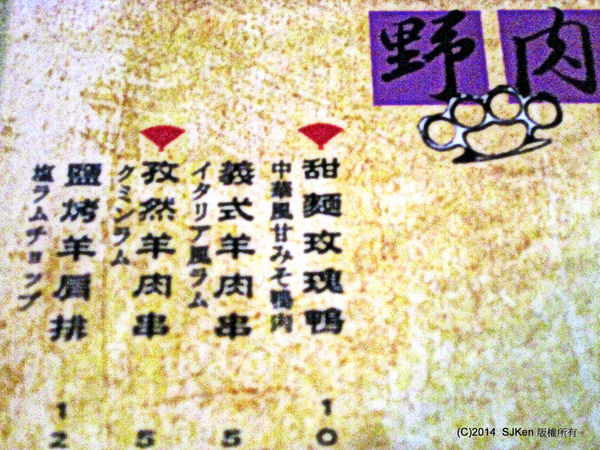 野肉
甜麵玫瑰鴨
中華風甘みそ鴨肉
10
義式羊肉串
イタリア風ラム
5
孜然羊肉串
クミンラム
5
鹽烤羊肩排
塩ラムチョップ
12
(C)2014 SJKen 版權所有。